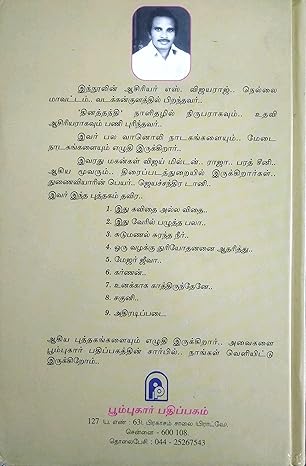 இந்நூலின் ஆசிரியர் எஸ். விஜயராஜ். நெல்லை
மாவட்டம். வடக்கன்குளத்தில் பிறந்தவர்..
'தினத்தந்தி' நாளிதழில் நிருபராகவும். உதவி
ஆசிரியராகவும் பணி புரிந்தவர்.
இவர் பல வானொலி நாடகங்களையும்.. மேடை
நாடகங்களையும் எழுதி இருக்கிறார்.
இவரது மகன்கள் விஜய் மில்டன். ராஜா. பரத் சீனி..
ஆகிய மூவரும். திரைப்படத்துறையில் இருக்கிறார்கள்..
துணைவியாரின் பெயர்.. ஜெயச்சந்திர டானி..
இவர் இந்த புத்தகம் தவிர...
1. இது கவிதை அல்ல விதை..
2. இது வேரில் பழுத்த பலா..
3. சுடுமணல் சுரந்த நீர்..
4. ஒரு வழக்கு துரியோதனனை ஆதரித்து..
5. மேஜர் ஜீவா..
6. கர்ணன்..
7. உனக்காக காத்திருந்தேனே..
8. சகுனி..
9. அதிரடிப்படை..
ஆகிய புத்தகங்களையும் எழுதி இருக்கிறார்.. அவைகளை
பூம்புகார் பதிப்பகத்தின் சார்பில்.. நாங்கள் வெளியிட்டு
இருக்கிறோம்..
பூம்புகார் பதிப்பகம்
127 ப. எண் : 63, பிரகாசம் சாலை (பிராட்வே),
சென்னை - 600 108.
தொலைபேசி : 044 - 25267543